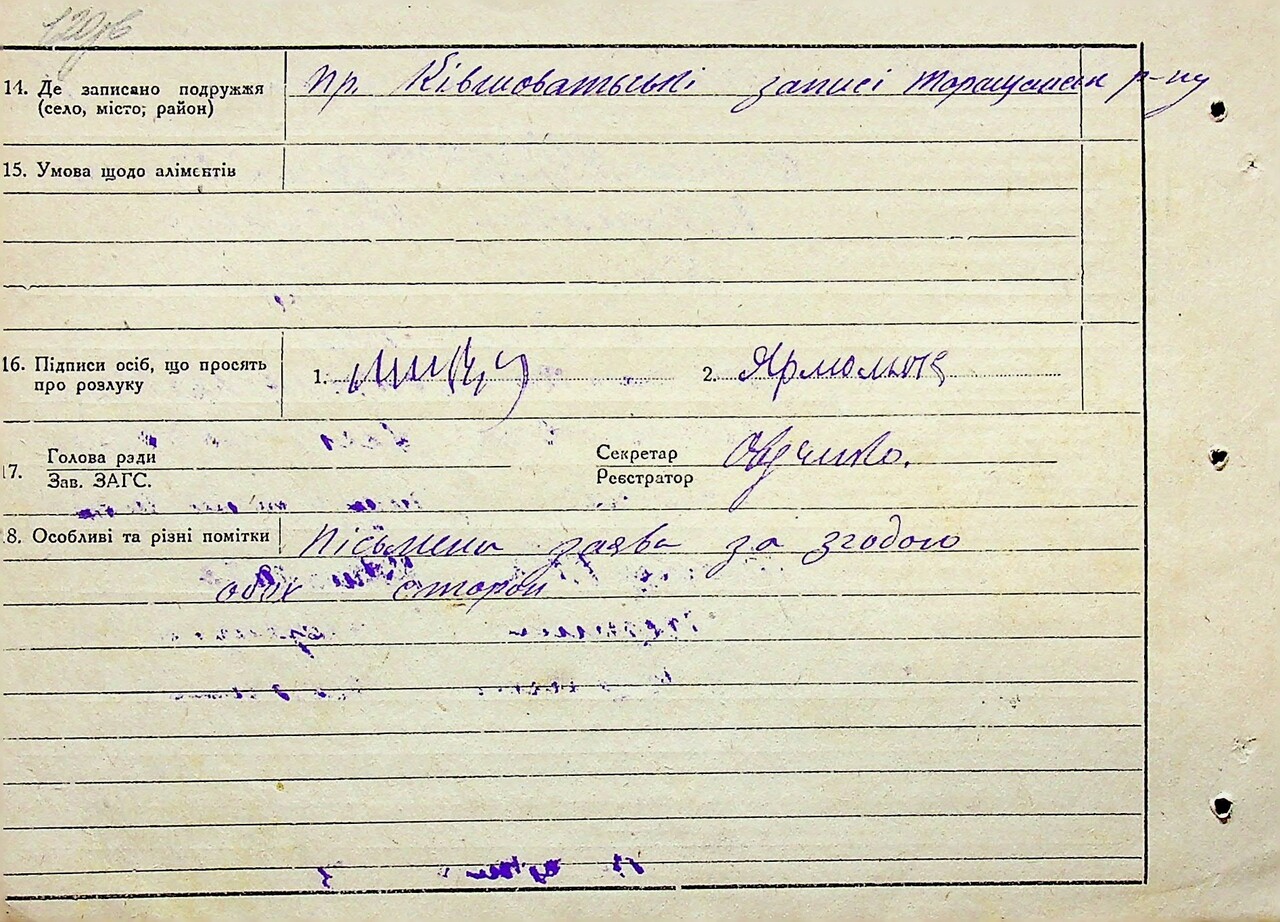 14. Де записано подружжя
(село, місто; район)
пр. Ківшоватські записі Таращанськ р-ну
15. Умова щодо аліментів
16. Підписи осіб, що просять
про розлуку
1.
2. Ярмольюк
17. Голова ради
Зав. ЗАГС.
Секретар
Реєстратор
8. Особливі та різні помітки
Пісьмена заява за згодою
обох сторон